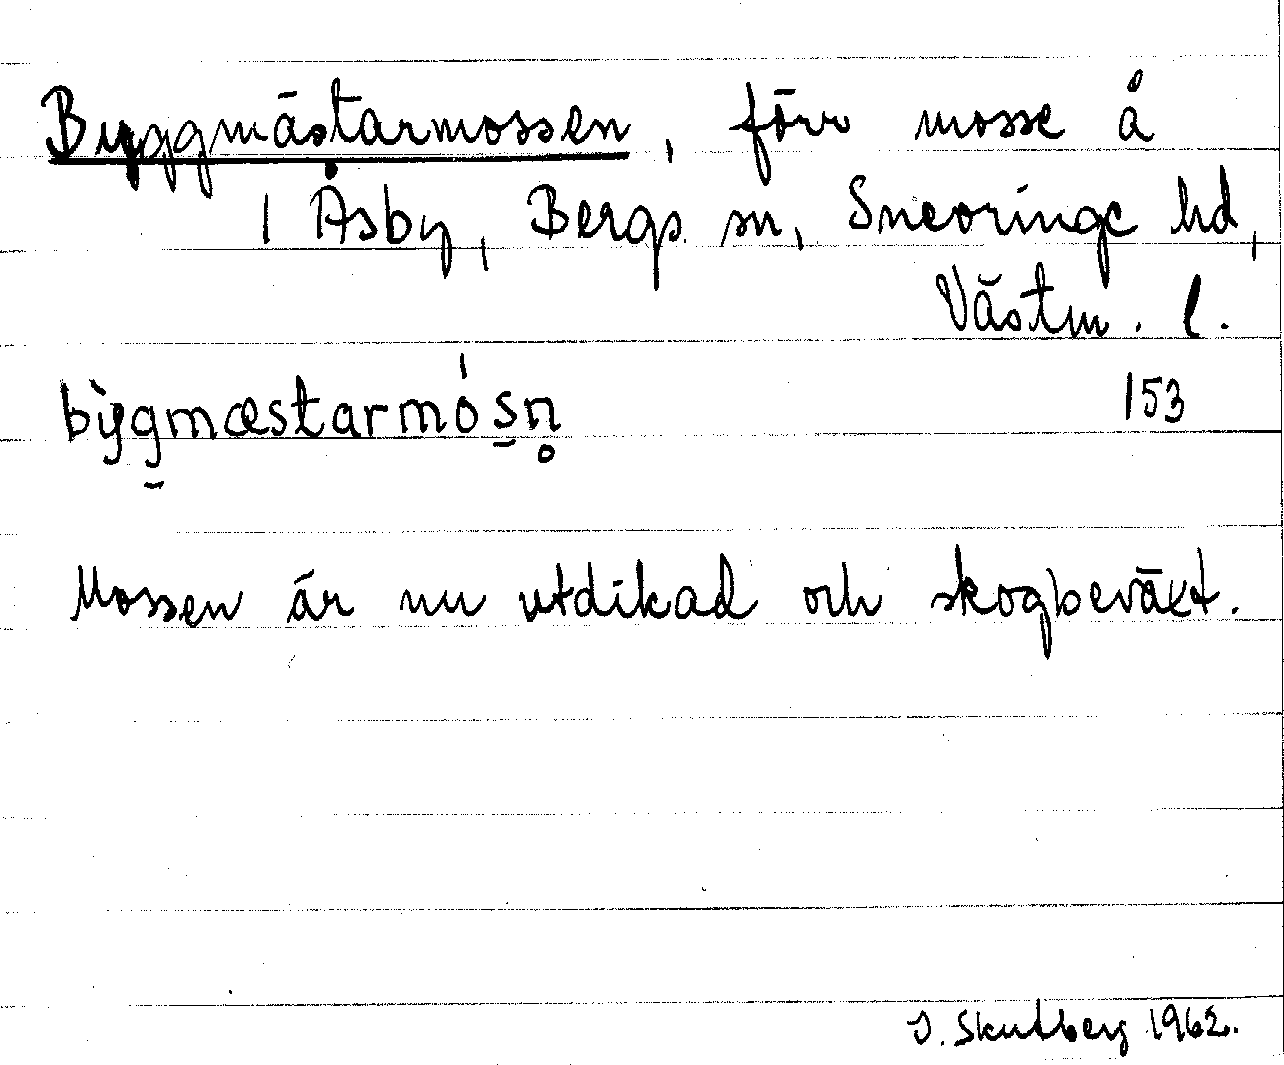 Byggmästarmossen, förr mosse å
1 Åsby, Bergs sn, Snevringe hd,
Västm. l.
bỳg̱mæstarmós̱n̥ 153
Mossen är nu utdikad och skogbeväxt.
J. Skutberg 1962.